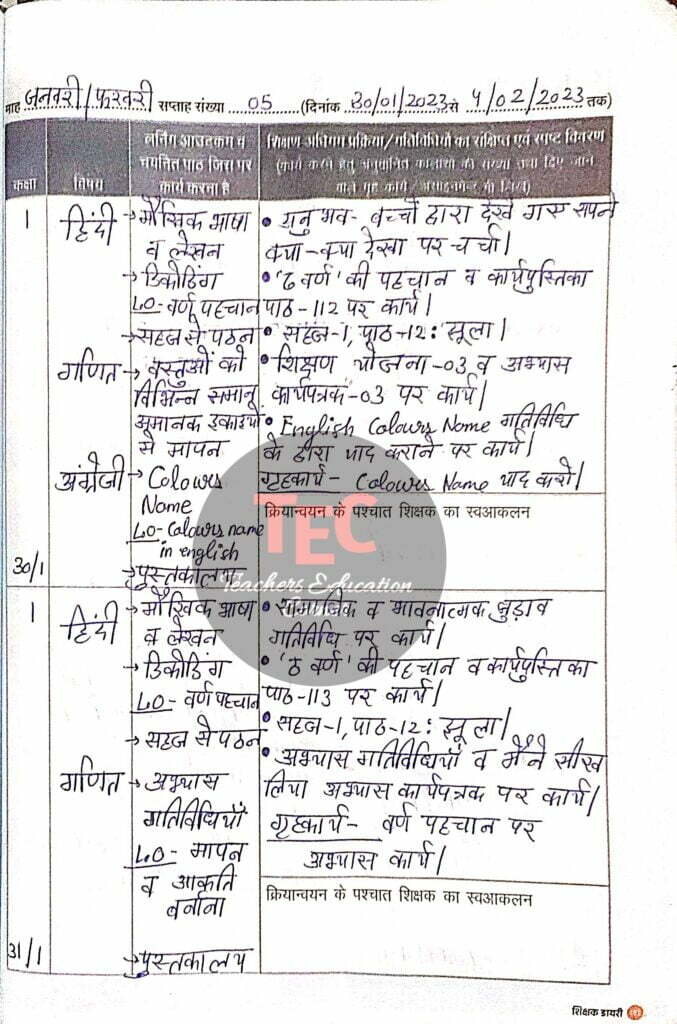 माह जनवरी/फरवरी सप्ताह संख्या 05 (दिनांक 30/01/2023 से 4/02/2023 तक)
कक्षा
विषय
लर्निंग आउटकम व
चयनित पाठ जिस पर
कार्य करना है
शिक्षण अधिगम प्रक्रिया/गतिविधियों का संक्षिप्त एवं स्पष्ट विवरण
(कार्य करने हेतु अनुमानित कालांशों की संख्या तथा दिए जाने
वाले गृह कार्य/असाइनमेन्ट भी लिखें)
1
हिंदी
→ मौखिक भाषा
व लेखन
→ डिकोडिंग
LO- वर्ण पहचान
→ सहज से पठन
• अनुभव- बच्चों द्वारा देखे गए सपने
क्या-क्या देखा पर चर्चा।
• 'ढ वर्ण' की पहचान व कार्यपुस्तिका
पाठ-112 पर कार्य।
• सहज-1, पाठ-12: झूला।
गणित
→ वस्तुओं को
विभिन्न समान,
अमानक इकाइयों
से मापन
• शिक्षण योजना-03 व अभ्यास
कार्यपत्रक-03 पर कार्य।
अंग्रेजी
→ Colours
Name
LO- Colours name
in english
→ पुस्तकालय
• English Colours Name गतिविधि
के द्वारा याद कराने पर कार्य।
गृहकार्य- Colours Name याद करो।
क्रियान्वयन के पश्चात शिक्षक का स्वआकलन
30/1
TEC
Teachers Education
1
हिंदी
→ मौखिक भाषा
व लेखन
→ डिकोडिंग
LO- वर्ण पहचान
→ सहज से पठन
• सामाजिक व भावनात्मक जुड़ाव
गतिविधि पर कार्य।
• 'ठ वर्ण' की पहचान व कार्यपुस्तिका
पाठ-113 पर कार्य।
• सहज-1, पाठ-12: झूला।
गणित
→ अभ्यास
गतिविधियाँ
LO- मापन
व आकृति
बनाना
→ पुस्तकालय
• अभ्यास गतिविधियाँ व मैंने सीख
लिया अभ्यास कार्यपत्रक पर कार्य।
गृहकार्य- वर्ण पहचान पर
अभ्यास कार्य।
क्रियान्वयन के पश्चात शिक्षक का स्वआकलन
31/1
शिक्षक डायरी